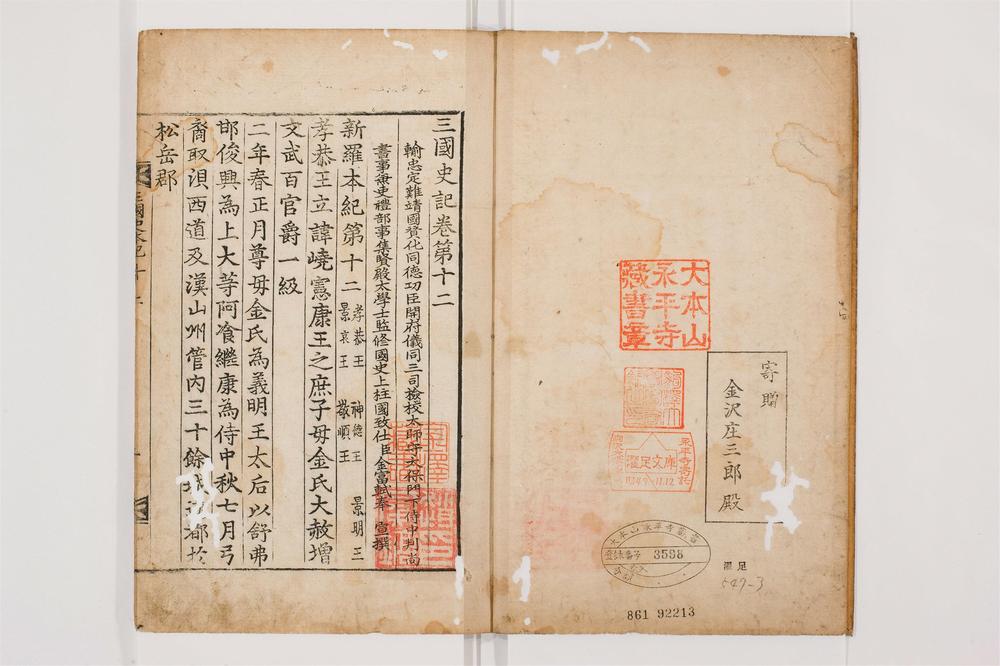 三國史記卷第十二
輸忠定難靖國贊化同德功臣開府儀同三司檢校太師守太保門下侍中判尚
書事兼吏禮部事集賢殿太學士監修國史上柱國致仕臣金富軾奉 宣撰
新羅本紀第十二 孝恭王 神德王 景明王
景哀王 敬順王
孝恭王立諱嶢憲康王之庶子母金氏大赦增
文武百官爵一級
二年春正月尊母金氏為義明王太后以舒弗
邯俊興為上大等阿飡繼康為侍中秋七月弓
裔取浿西道及漢山州管內三十餘城都於
松岳郡
大本山
永平寺
藏書章
寄贈
金沢庄三郎 殿
永平寺寄託
濯足文庫
1934.9.11.12
大本山永平寺
登録番号 3598
濯足
547-3
861 92213